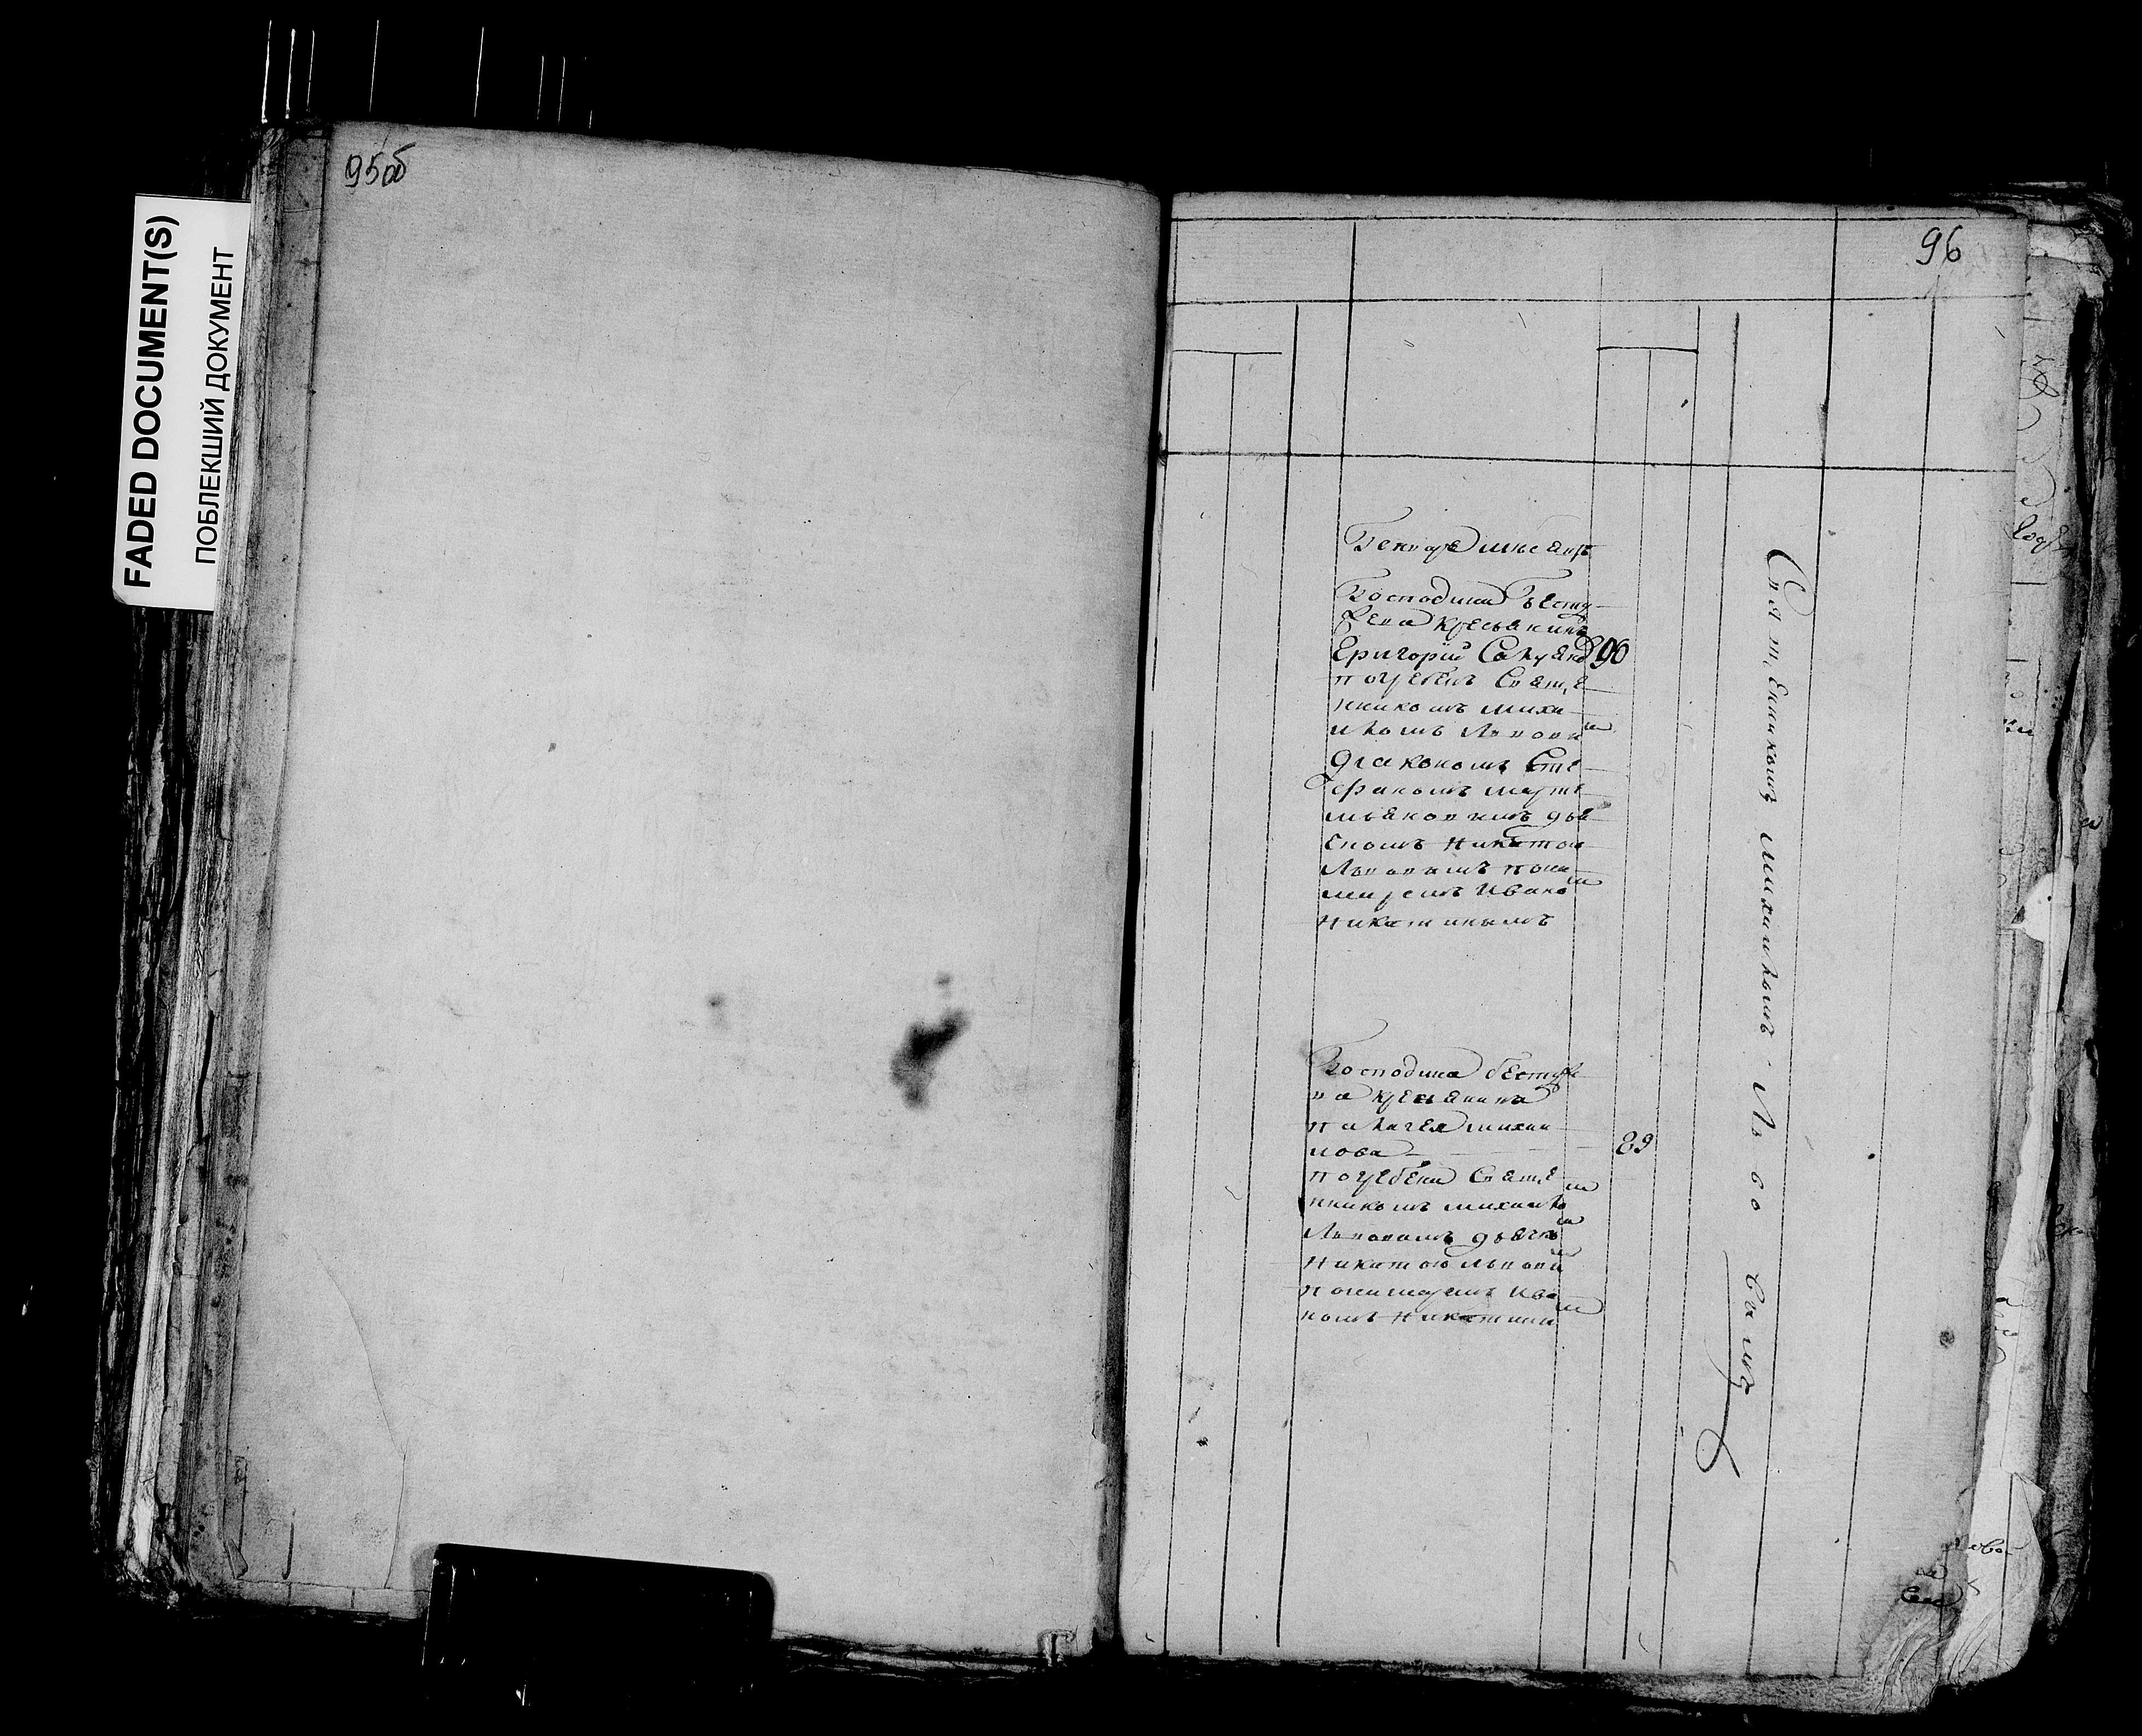 95об
FADED DOCUMENT(S)
ПОБЛЕКШИЙ ДОКУМЕНТ
96
Господина Бесту
жева кресьянинъ
Григорий 90
погребенъ Свяще
нникомъ михаи
ломъ Львовы м
діакономъ Сте
фаномъ марте
мьяновымъ дья
Никитои
Львовымъ поно
маремъ Ивано м
Никитинымъ
Господина бестуже
ва кресьянина
михаи
лова 89
погребена Свяще
нникомъ михаило м
Львовымъ дьячко м
Никитою львовы м
пономаремъ Ива
номъ Никитины м
Священникомъ михаиломъ Львовымъ